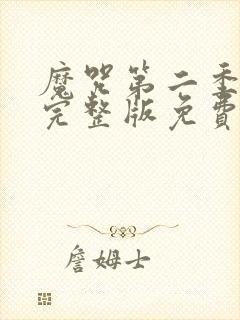 魔咒第二季
完整版免費
詹姆士